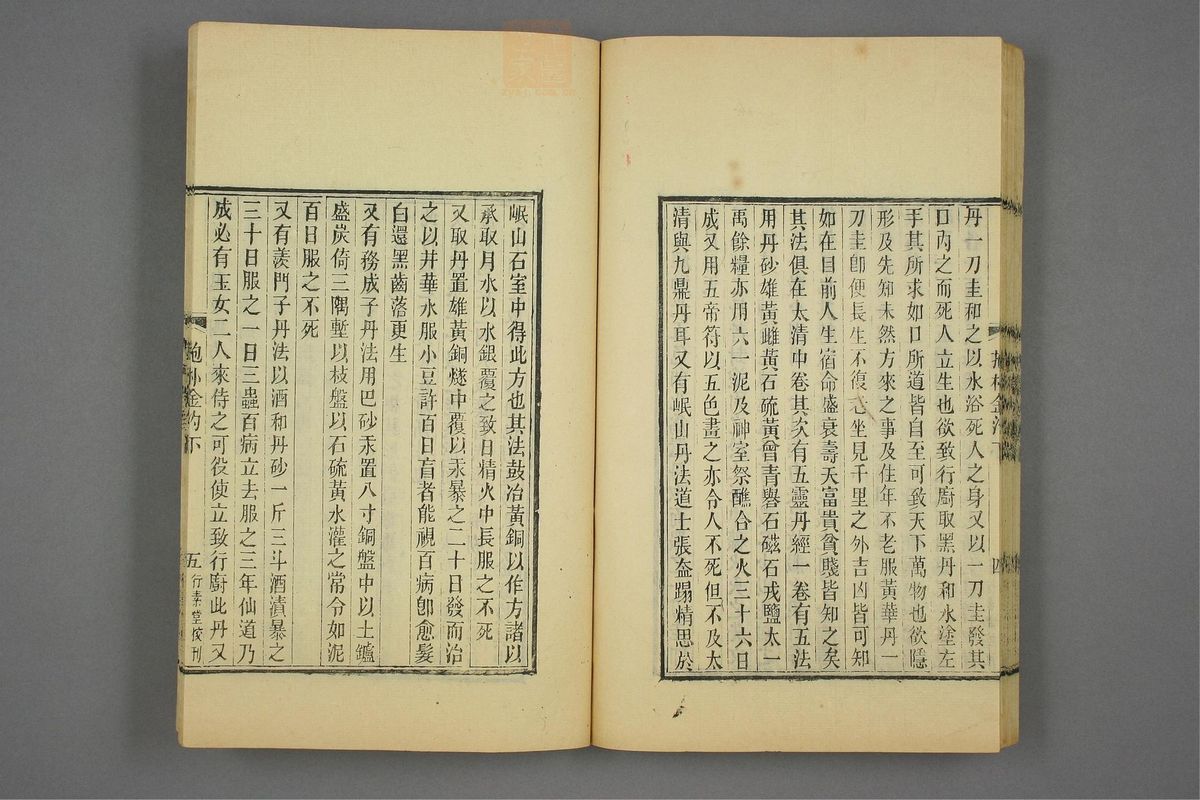 丹一刀圭和之以水浴死人之身又以一刀圭發其
口內之而死人立生也欲致行廚取黑丹和水塗左
手其所求如口所道皆自至可致天下萬物也欲隱
形及先知未然方來之事及住年不老服黃華丹一
刀圭卽便長生不復老坐見千里之外吉凶皆可知
如在目前人生宿命盛衰壽夭富貴貧賤皆知之矣
其法俱在太清中卷其次有五靈丹經一卷有五法
用丹砂雄黃雌黃石硫黃曾青礜石磁石戎鹽太一
禹餘糧亦用六一泥及神室祭醮合之火三十六日
成又用五帝符以五色畫之亦令人不死但不及太
清與九鼎丹耳又有岷山丹法道士張盍蹋精思於
四
岷山石室中得此方也其法鼓冶黃銅以作方諸以
承取月水以水銀覆之致日精火中長服之不死
又取丹置雄黃銅燧中覆以汞暴之二十日發而治
之以井華水服小豆許百日盲者能視百病卽愈髮
白還黑齒落更生
又有務成子丹法用巴砂汞置八寸銅盤中以土鑪
盛炭倚三隅塹以枝盤以石硫黃水灌之常令如泥
百日服之不死
又有羨門子丹法以酒和丹砂一斤三斗酒漬暴之
三十日服之一日三蟲百病立去服之三年仙道乃
成必有玉女二人來侍之可役使立致行廚此丹又
抱朴金勺下
五
行素堂校刊